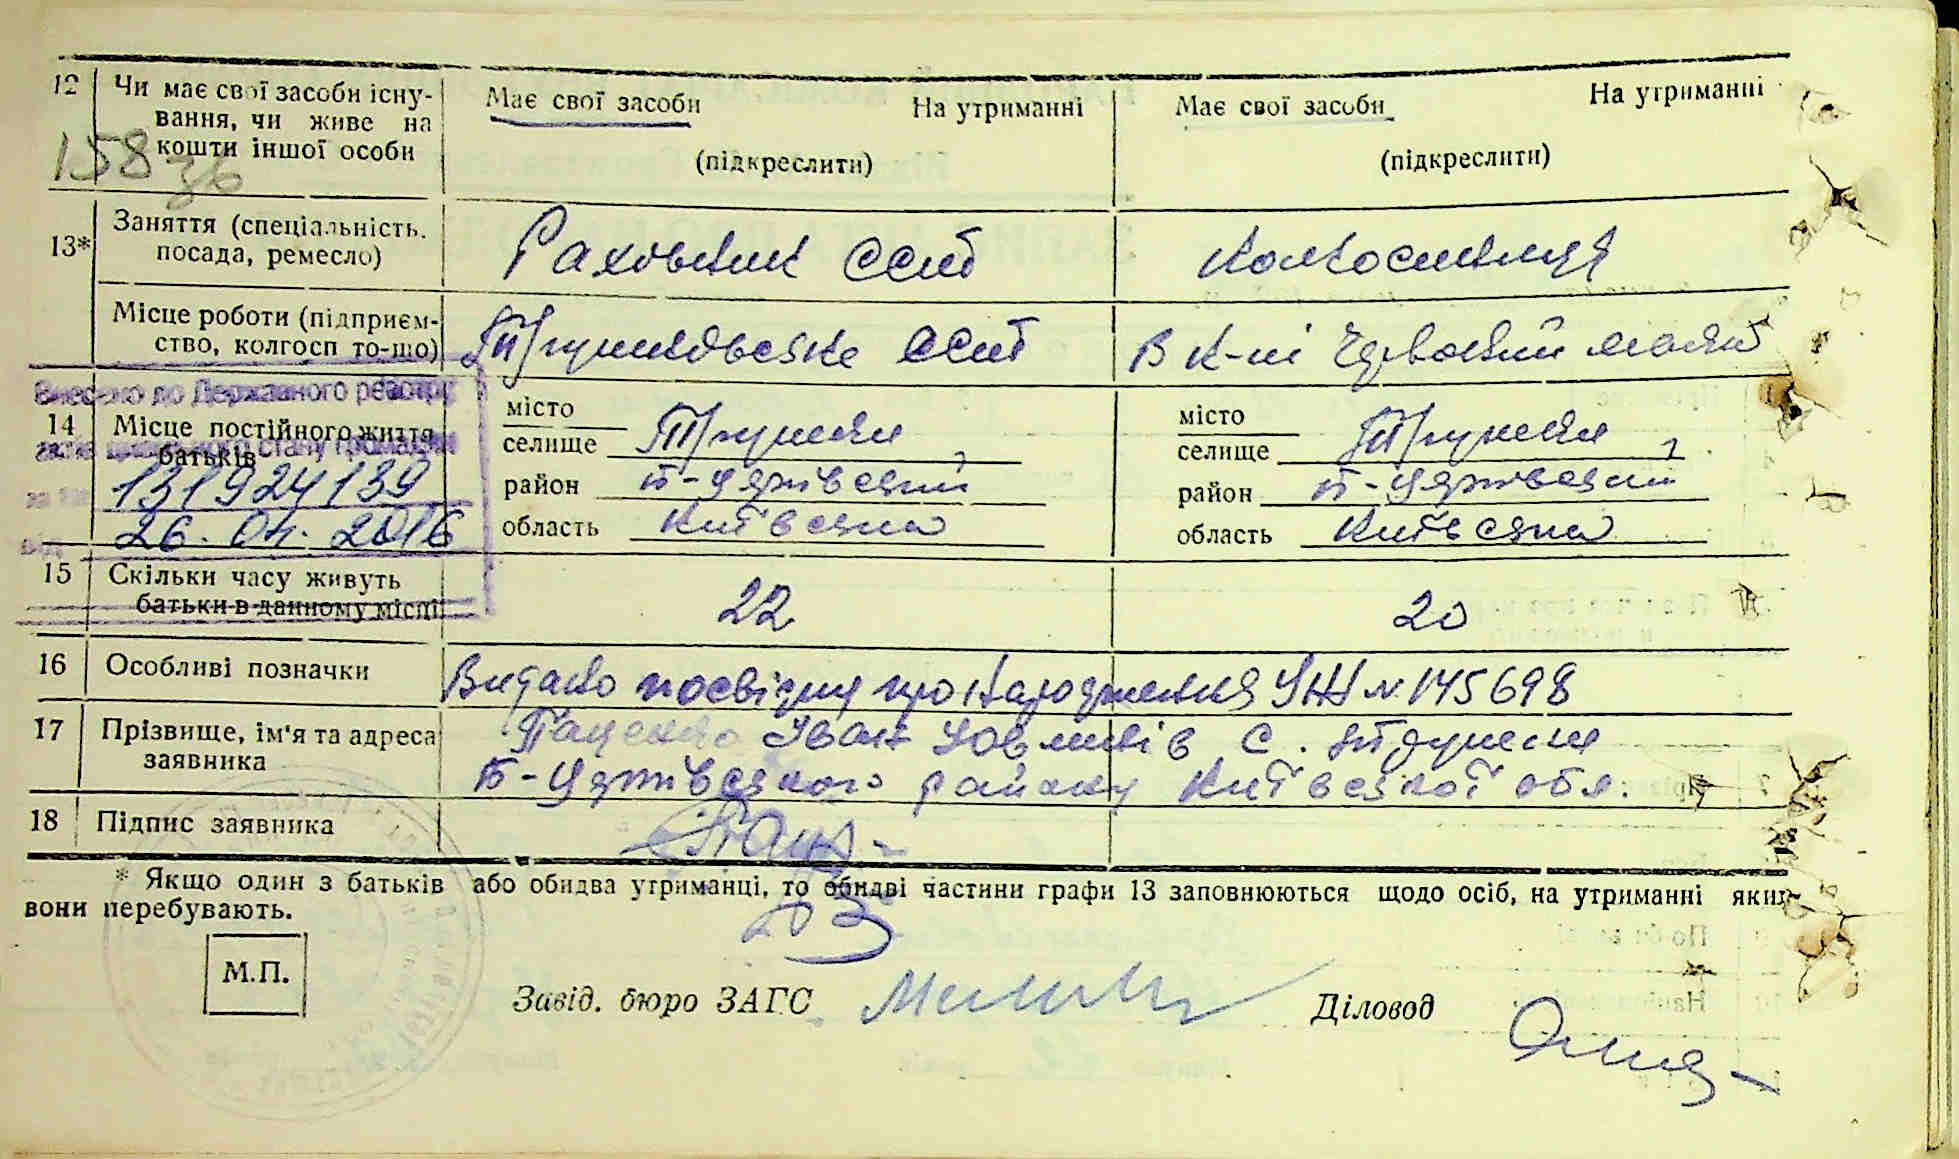 12 Чи має свої засоби існу- Має свої засоби На утриманні Має свої засоби На утриманні
вання, чи живе на
кошти іншої особи (підкреслити) (підкреслити)
158 зв
13* Заняття (спеціальність. Раховник ССит колхосниця
посада, ремесло)
Місце роботи (підприєм- ССит В к-пі Червоний маяк
ство, колгосп то-що)
Внесено до Державного реєстру
14 Місце постійного життя місто місто
батьків селище Трушки селище Трушки
актів цивільного стану громадян
за № 131924139 район Б-Церківський район Б-Церківський
від 26.04.2016 область Київська область Київська
15 Скільки часу живуть 22 20
батьки в данному місці
16 Особливі позначки Видано посвідку про народження УЖ № 145698
17 Прізвище, ім'я та адреса Іван с. Трушки
заявника Б-Церківського району Київської обл.
18 Підпис заявника
* Якщо один з батьків або обидва утриманці, то обидві частини графи 13 заповнюються щодо осіб, на утриманні яких
вони перебувають.
М.П.
Завід. бюро ЗАГС Діловод